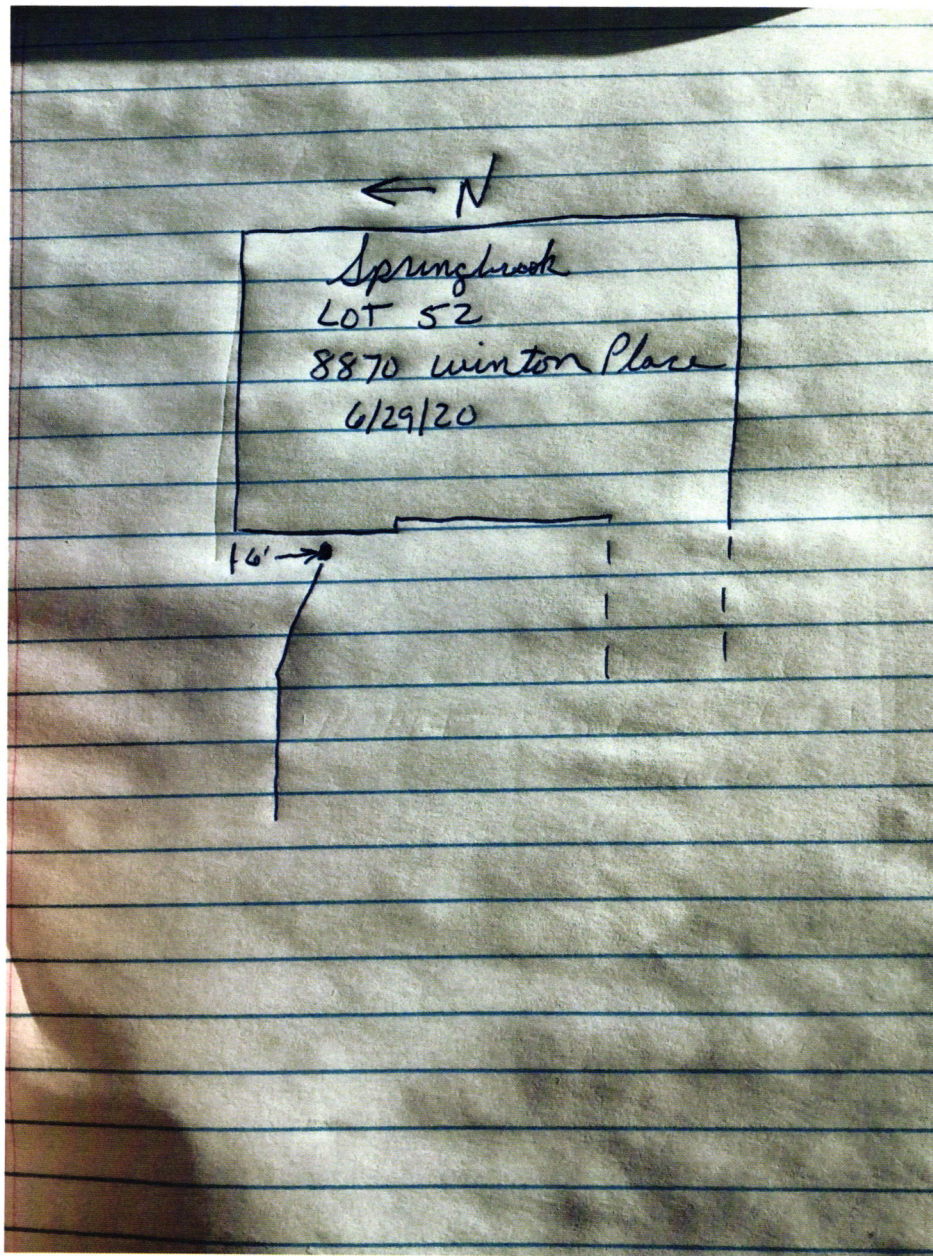 ← N
Springbrook
LOT 52
8870 winton Place
6/29/20
16' →